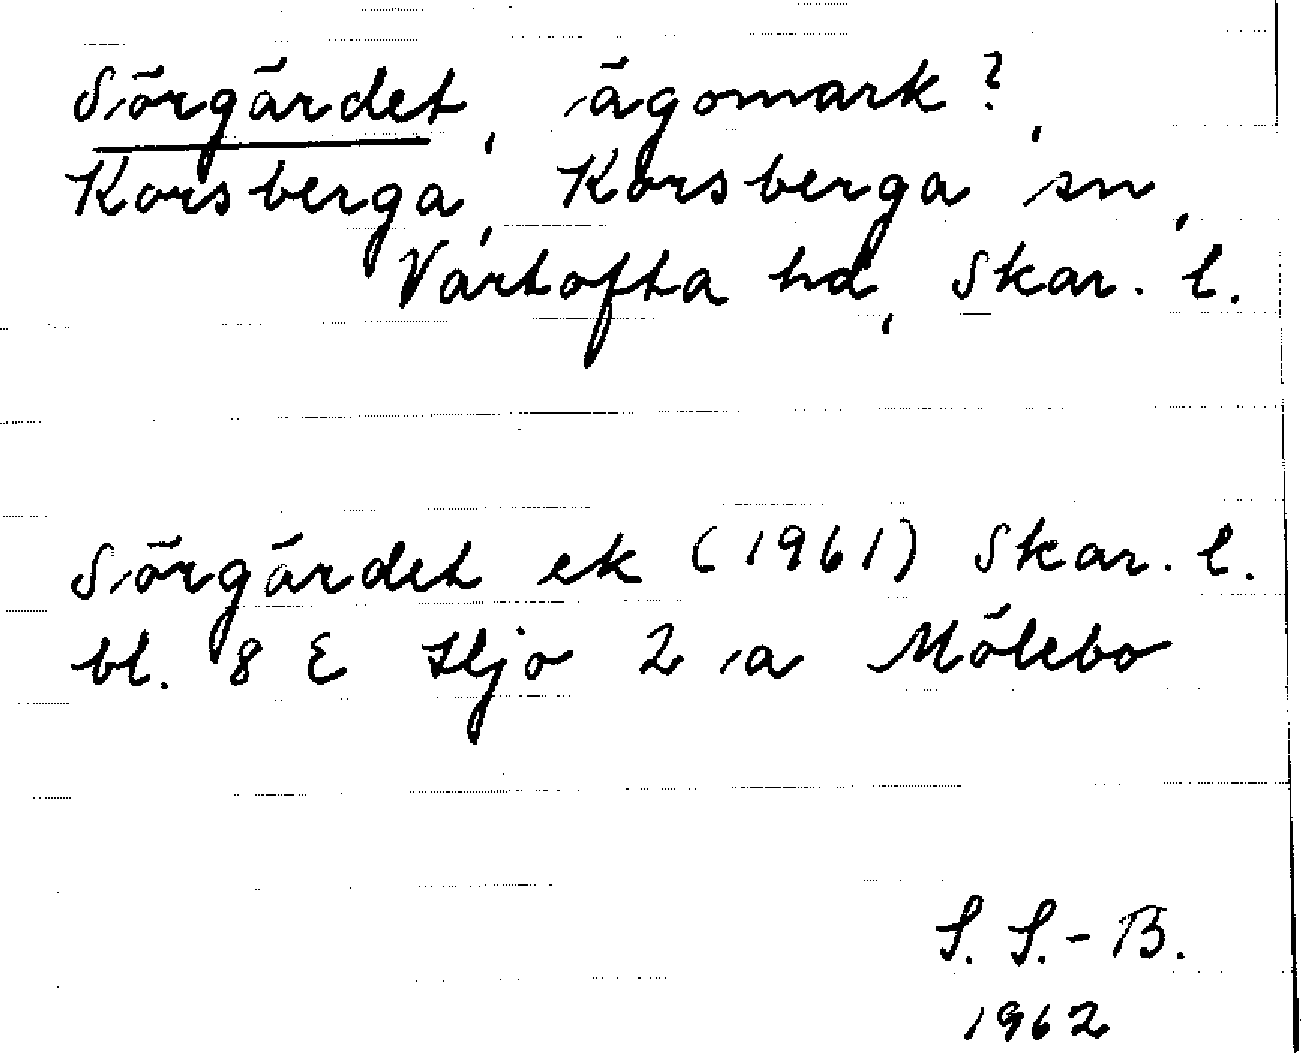 Sörgärdet, ägomark?,
Korsberga, Korsberga sn,
Vartofta hd, Skar. l.
Sörgärdet ek (1961) Skar. l.
bl. 8 E Hjo 2 a Mölebo
S. S.-B.
1962